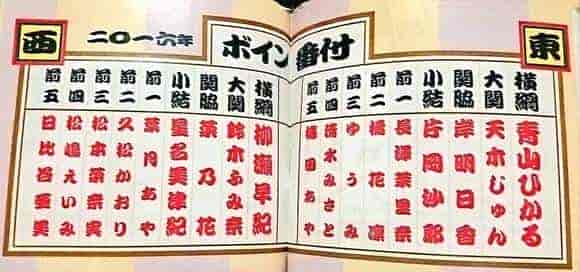 東
ボイン番付
二〇一六年
西
横綱 青山ひかる
大関 天木じゅん
関脇 岸明日香
小結 片岡沙耶
前一 長澤茉里奈
前二 橘花凛
前三 ゆうみ
前四 清水みさと
前五
横綱 柳瀬早紀
大関 鈴木ふみ奈
関脇 菜乃花
小結 星名美津紀
前一 葉月あや
前二 久松かおり
前三 松本菜奈実
前四 松嶋えいみ
前五 日比谷亜美